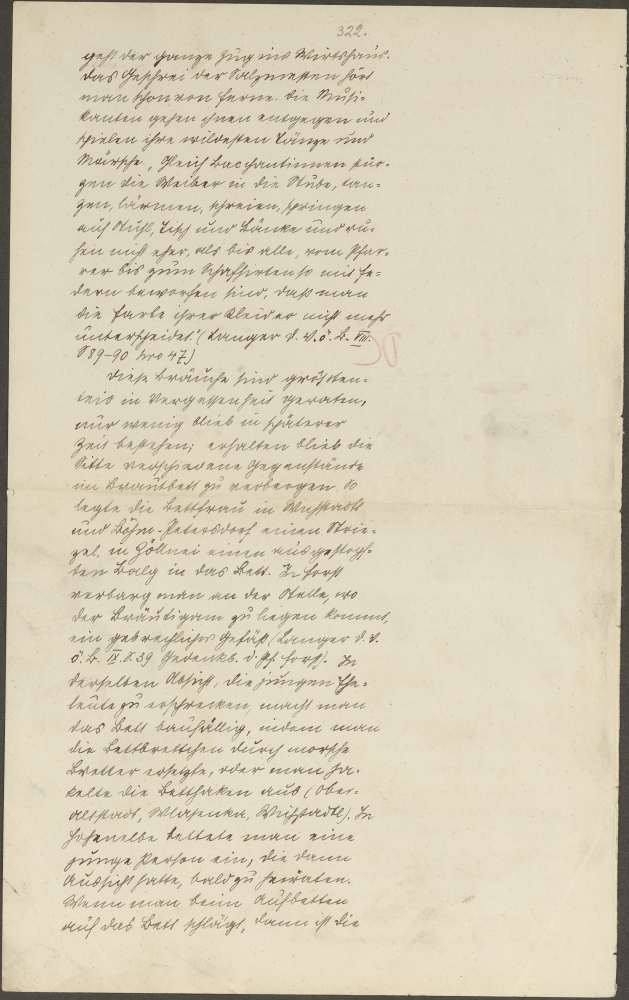 322.
geht der ganze Zug ins Wirtshaus.
Das Geschrei der Salzmesten hört
man schon von ferne. Die Musi-
kanten gehen ihnen entgegen und
spielen ihre wildesten Tänze und
Märsche, Gleich Bacchantinnen stür-
zen die Weiber in die Stube, tan-
zen, lärmen, schreien, springen
auf Stuhl, Tisch und Bänke und ru-
hen nicht eher, als bis alle, vom Pfar-
rer bis zum Schafhirten so mit Fe-
dern beworfen sind, daß man
die Farbe ihrer Kleider nicht mehr
unterscheidet." (Langer d. V. ö. B. VIII.
S 89-90 Nro 47)
Diese Bräuche sind größten-
teis in Vergessenheit geraten,
nur wenig blieb in späterer
Zeit bestehen; erhalten blieb die
Sitte verschiedene Gegenstände
im Brautbett zu verbergen. So
legte die Bettfrau in Wichstadtl
und Böhm-Petersdorf einen Strie-
zel, in Göllnei einen ausgestopf-
ten Balg in das Bett. In Forst
verbarg man an der Stelle, wo
der Bräutigam zu liegen kommt,
ein gebrechliches Gefäß (Langer d. V.
ö. B. IX. S. 39 Gedenkb. d. Pf. Forst). In
derselben Absicht, die jungen Ehe-
leute zu erschrecken, macht man
das Bett baufällig, indem man
die Bettbrettchen durch morsche
Bretter ersetzte, oder man ha-
kelte die Betthaken aus (Ober-
altstadt, Wlasenka, Wichstadtl). In
Hohenelbe bettete man eine
junge Person ein, die dann
Aussicht hatte, bald zu heiraten.
Wenn man beim Aufbetten
auf das Bett schlägt, dann ist die